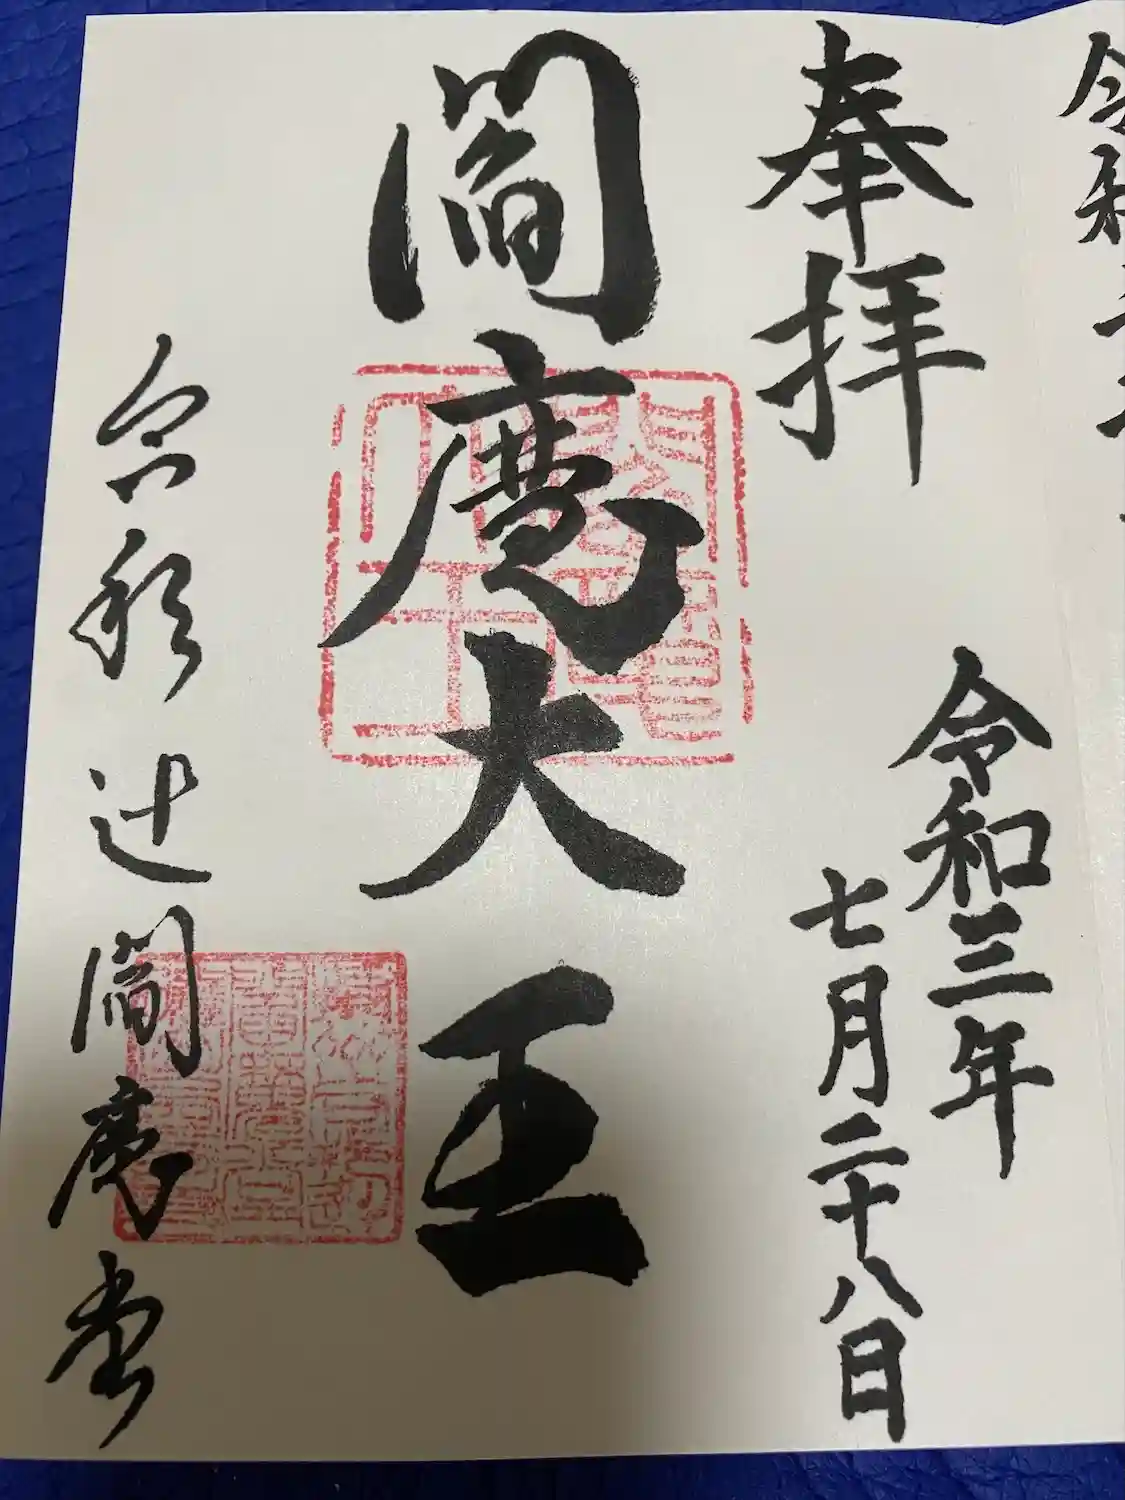 令和三
奉拝
令和三年
七月二十八日
閻魔大王
辻閻魔堂